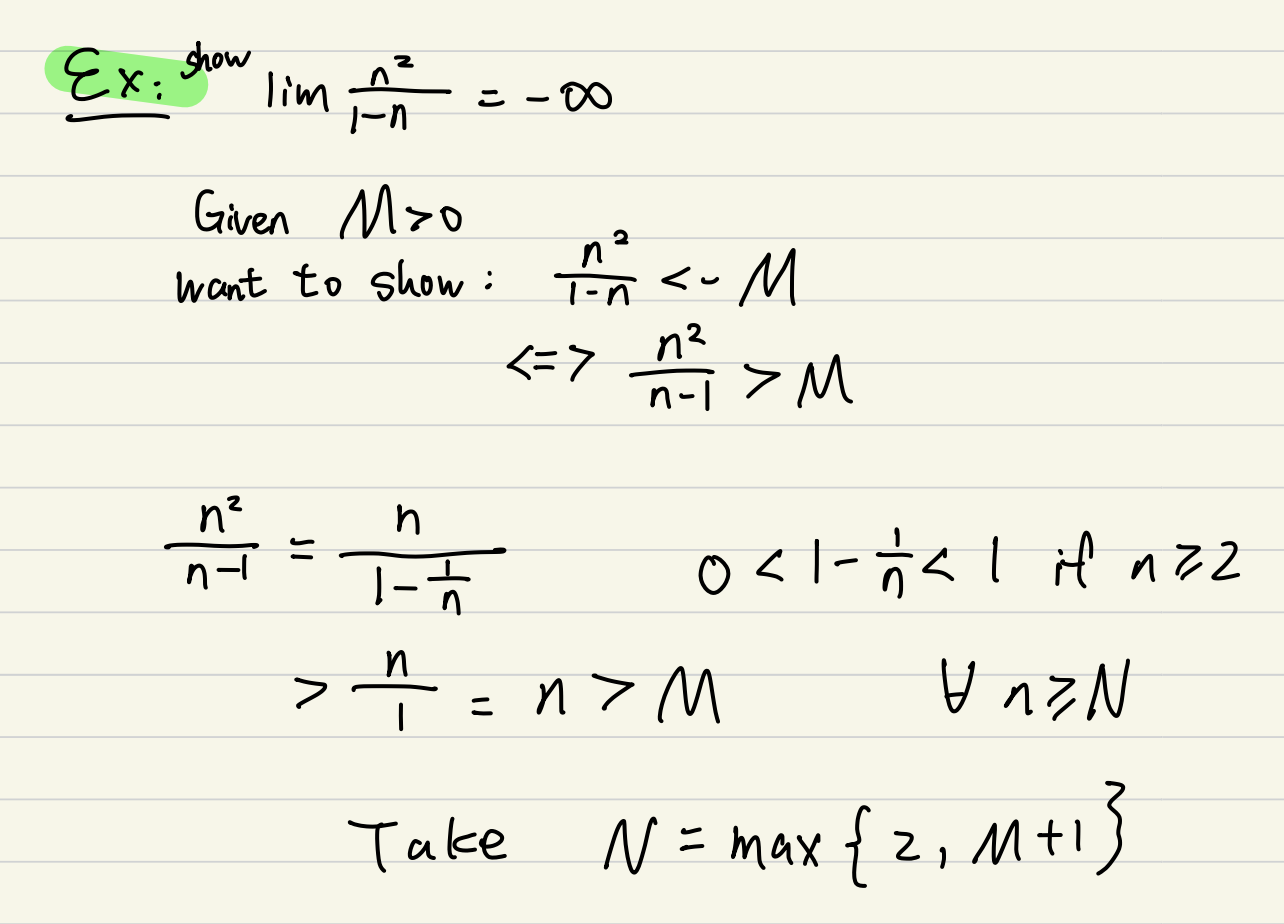 Ex: show lim n²/(1-n) = -∞
Given M>0
want to show: n²/(1-n) < - M
<=> n²/(n-1) > M
n²/(n-1) = n/(1-1/n) 0 < 1-1/n < 1 if n≥2
> n/1 = n > M ∀ n≥N
Take N = max{2, M+1}